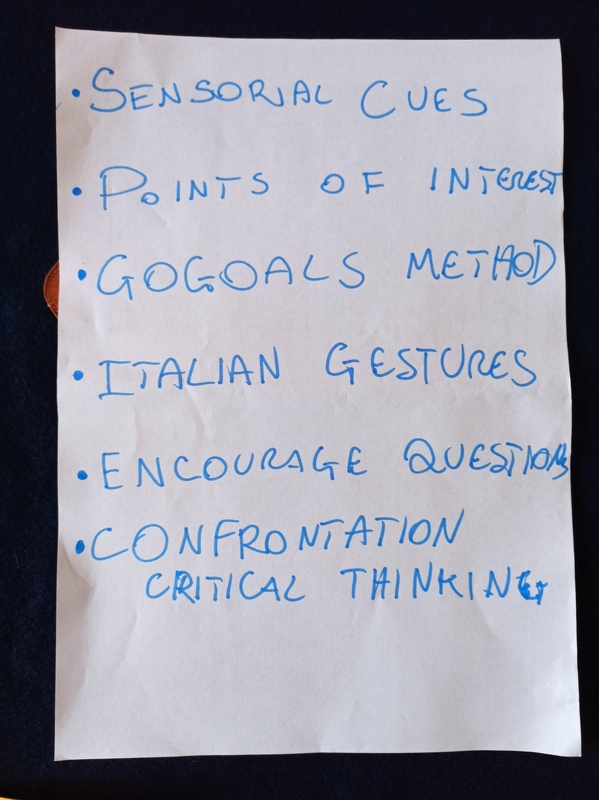 • SENSORIAL CUES
• POINTS OF INTEREST
• GOGOALS METHOD
• ITALIAN GESTURES
• ENCOURAGE QUESTIONS
• CONFRONTATION
CRITICAL THINKING